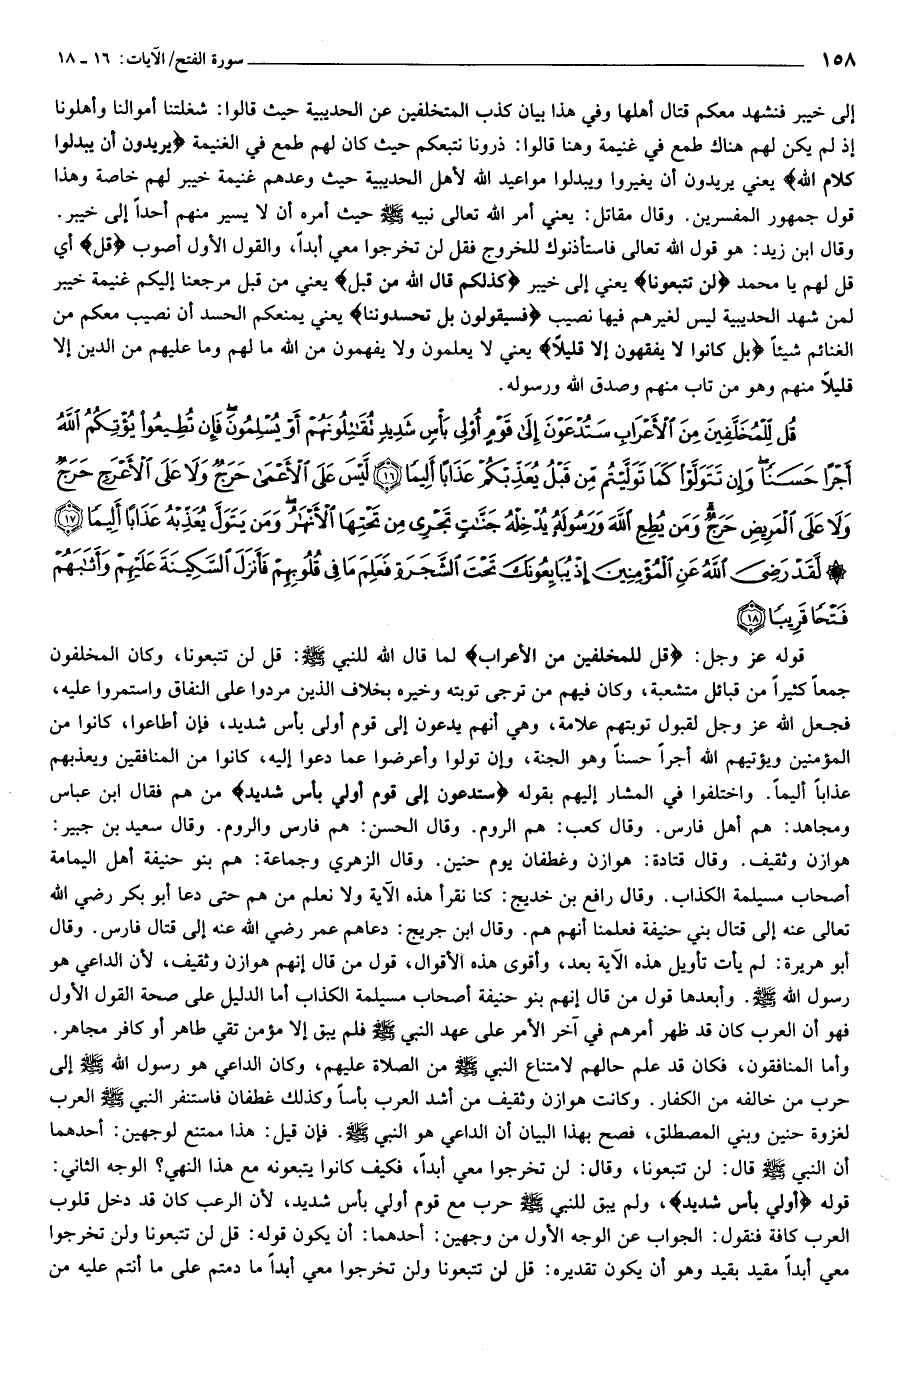 ١٥٨ سورة الفتح/ الآيات: ١٦ ـ ١٨
إلى خيبر فنشهد معكم قتال أهلها وفي هذا بيان كذب المتخلفين عن الحديبية حيث قالوا: شغلتنا أموالنا وأهلونا
إذ لم يكن لهم هناك طمع في غنيمة وهنا قالوا: ذرونا نتبعكم حيث كان لهم طمع في الغنيمة ﴿يريدون أن يبدلوا
كلام الله﴾ يعني يريدون أن يغيروا ويبدلوا مواعيد الله لأهل الحديبية حيث وعدهم غنيمة خيبر لهم خاصة وهذا
قول جمهور المفسرين. وقال مقاتل: يعني أمر الله تعالى نبيه ﷺ حيث أمره أن لا يسير منهم أحداً إلى خيبر.
وقال ابن زيد: هو قول الله تعالى فاستأذنوك للخروج فقل لن تخرجوا معي أبداً، والقول الأول أصوب ﴿قل﴾ أي
قل لهم يا محمد ﴿لن تتبعونا﴾ يعني إلى خيبر ﴿كذلكم قال الله من قبل﴾ يعني من قبل مرجعنا إليكم غنيمة خيبر
لمن شهد الحديبية ليس لغيرهم فيها نصيب ﴿فسيقولون بل تحسدوننا﴾ يعني يمنعكم الحسد أن نصيب معكم من
الغنائم شيئاً ﴿بل كانوا لا يفقهون إلا قليلاً﴾ يعني لا يعلمون ولا يفهمون من الله ما لهم وما عليهم من الدين إلا
قليلاً منهم وهو من تاب منهم وصدق الله ورسوله.
قُل لِّلْمُخَلَّفِينَ مِنَ ٱلْأَعْرَابِ سَتُدْعَوْنَ إِلَىٰ قَوْمٍ أُوْلِى بَأْسٍ شَدِيدٍ تُقَٰتِلُونَهُمْ أَوْ يُسْلِمُونَ ۖ فَإِن تُطِيعُوا۟ يُؤْتِكُمُ ٱللَّهُ
أَجْرًا حَسَنًا ۖ وَإِن تَتَوَلَّوْا۟ كَمَا تَوَلَّيْتُم مِّن قَبْلُ يُعَذِّبْكُمْ عَذَابًا أَلِيمًا ١٦ لَّيْسَ عَلَى ٱلْأَعْمَىٰ حَرَجٌ وَلَا عَلَى ٱلْأَعْرَجِ حَرَجٌ
وَلَا عَلَى ٱلْمَرِيضِ حَرَجٌ ۗ وَمَن يُطِعِ ٱللَّهَ وَرَسُولَهُۥ يُدْخِلْهُ جَنَّٰتٍ تَجْرِى مِن تَحْتِهَا ٱلْأَنْهَٰرُ ۖ وَمَن يَتَوَلَّ يُعَذِّبْهُ عَذَابًا أَلِيمًا ١٧
۞ لَّقَدْ رَضِىَ ٱللَّهُ عَنِ ٱلْمُؤْمِنِينَ إِذْ يُبَايِعُونَكَ تَحْتَ ٱلشَّجَرَةِ فَعَلِمَ مَا فِى قُلُوبِهِمْ فَأَنزَلَ ٱلسَّكِينَةَ عَلَيْهِمْ وَأَثَٰبَهُمْ
فَتْحًا قَرِيبًا ١٨
قوله عز وجل: ﴿قل للمخلفين من الأعراب﴾ لما قال الله للنبي ﷺ: قل لن تتبعونا، وكان المخلفون
جمعاً كثيراً من قبائل متشعبة، وكان فيهم من ترجى توبته وخيره بخلاف الذين مردوا على النفاق واستمروا عليه،
فجعل الله عز وجل لقبول توبتهم علامة، وهي أنهم يدعون إلى قوم أولى بأس شديد، فإن أطاعوا، كانوا من
المؤمنين ويؤتيهم الله أجراً حسناً وهو الجنة، وإن تولوا وأعرضوا عما دعوا إليه، كانوا من المنافقين ويعذبهم
عذاباً أليماً. واختلفوا في المشار إليهم بقوله ﴿ستدعون إلى قوم أولي بأس شديد﴾ من هم فقال ابن عباس
ومجاهد: هم أهل فارس. وقال كعب: هم الروم. وقال الحسن: هم فارس والروم. وقال سعيد بن جبير:
هوازن وثقيف. وقال قتادة: هوازن وغطفان يوم حنين. وقال الزهري وجماعة: هم بنو حنيفة أهل اليمامة
أصحاب مسيلمة الكذاب. وقال رافع بن خديج: كنا نقرأ هذه الآية ولا نعلم من هم حتى دعا أبو بكر رضي الله
تعالى عنه إلى قتال بني حنيفة فعلمنا أنهم هم. وقال ابن جريج: دعاهم عمر رضي الله عنه إلى قتال فارس. وقال
أبو هريرة: لم يأت تأويل هذه الآية بعد، وأقوى هذه الأقوال، قول من قال إنهم هوازن وثقيف، لأن الداعي هو
رسول الله ﷺ. وأبعدها قول من قال إنهم بنو حنيفة أصحاب مسيلمة الكذاب أما الدليل على صحة القول الأول
فهو أن العرب كان قد ظهر أمرهم في آخر الأمر على عهد النبي ﷺ فلم يبق إلا مؤمن تقي طاهر أو كافر مجاهر.
وأما المنافقون، فكان قد علم حالهم لامتناع النبي ﷺ من الصلاة عليهم، وكان الداعي هو رسول الله ﷺ إلى
حرب من خالفه من الكفار. وكانت هوازن وثقيف من أشد العرب بأساً وكذلك غطفان فاستنفر النبي ﷺ العرب
لغزوة حنين وبني المصطلق، فصح بهذا البيان أن الداعي هو النبي ﷺ. فإن قيل: هذا ممتنع لوجهين: أحدهما
أن النبي ﷺ قال: لن تتبعونا، وقال: لن تخرجوا معي أبداً، فكيف كانوا يتبعونه مع هذا النهي؟ الوجه الثاني:
قوله ﴿أولي بأس شديد﴾، ولم يبق للنبي ﷺ حرب مع قوم أولي بأس شديد، لأن الرعب كان قد دخل قلوب
العرب كافة فنقول: الجواب عن الوجه الأول من وجهين: أحدهما: أن يكون قوله: قل لن تتبعونا ولن تخرجوا
معي أبداً مقيد بقيد وهو أن يكون تقديره: قل لن تتبعونا ولن تخرجوا معي أبداً ما دمتم على ما أنتم عليه من